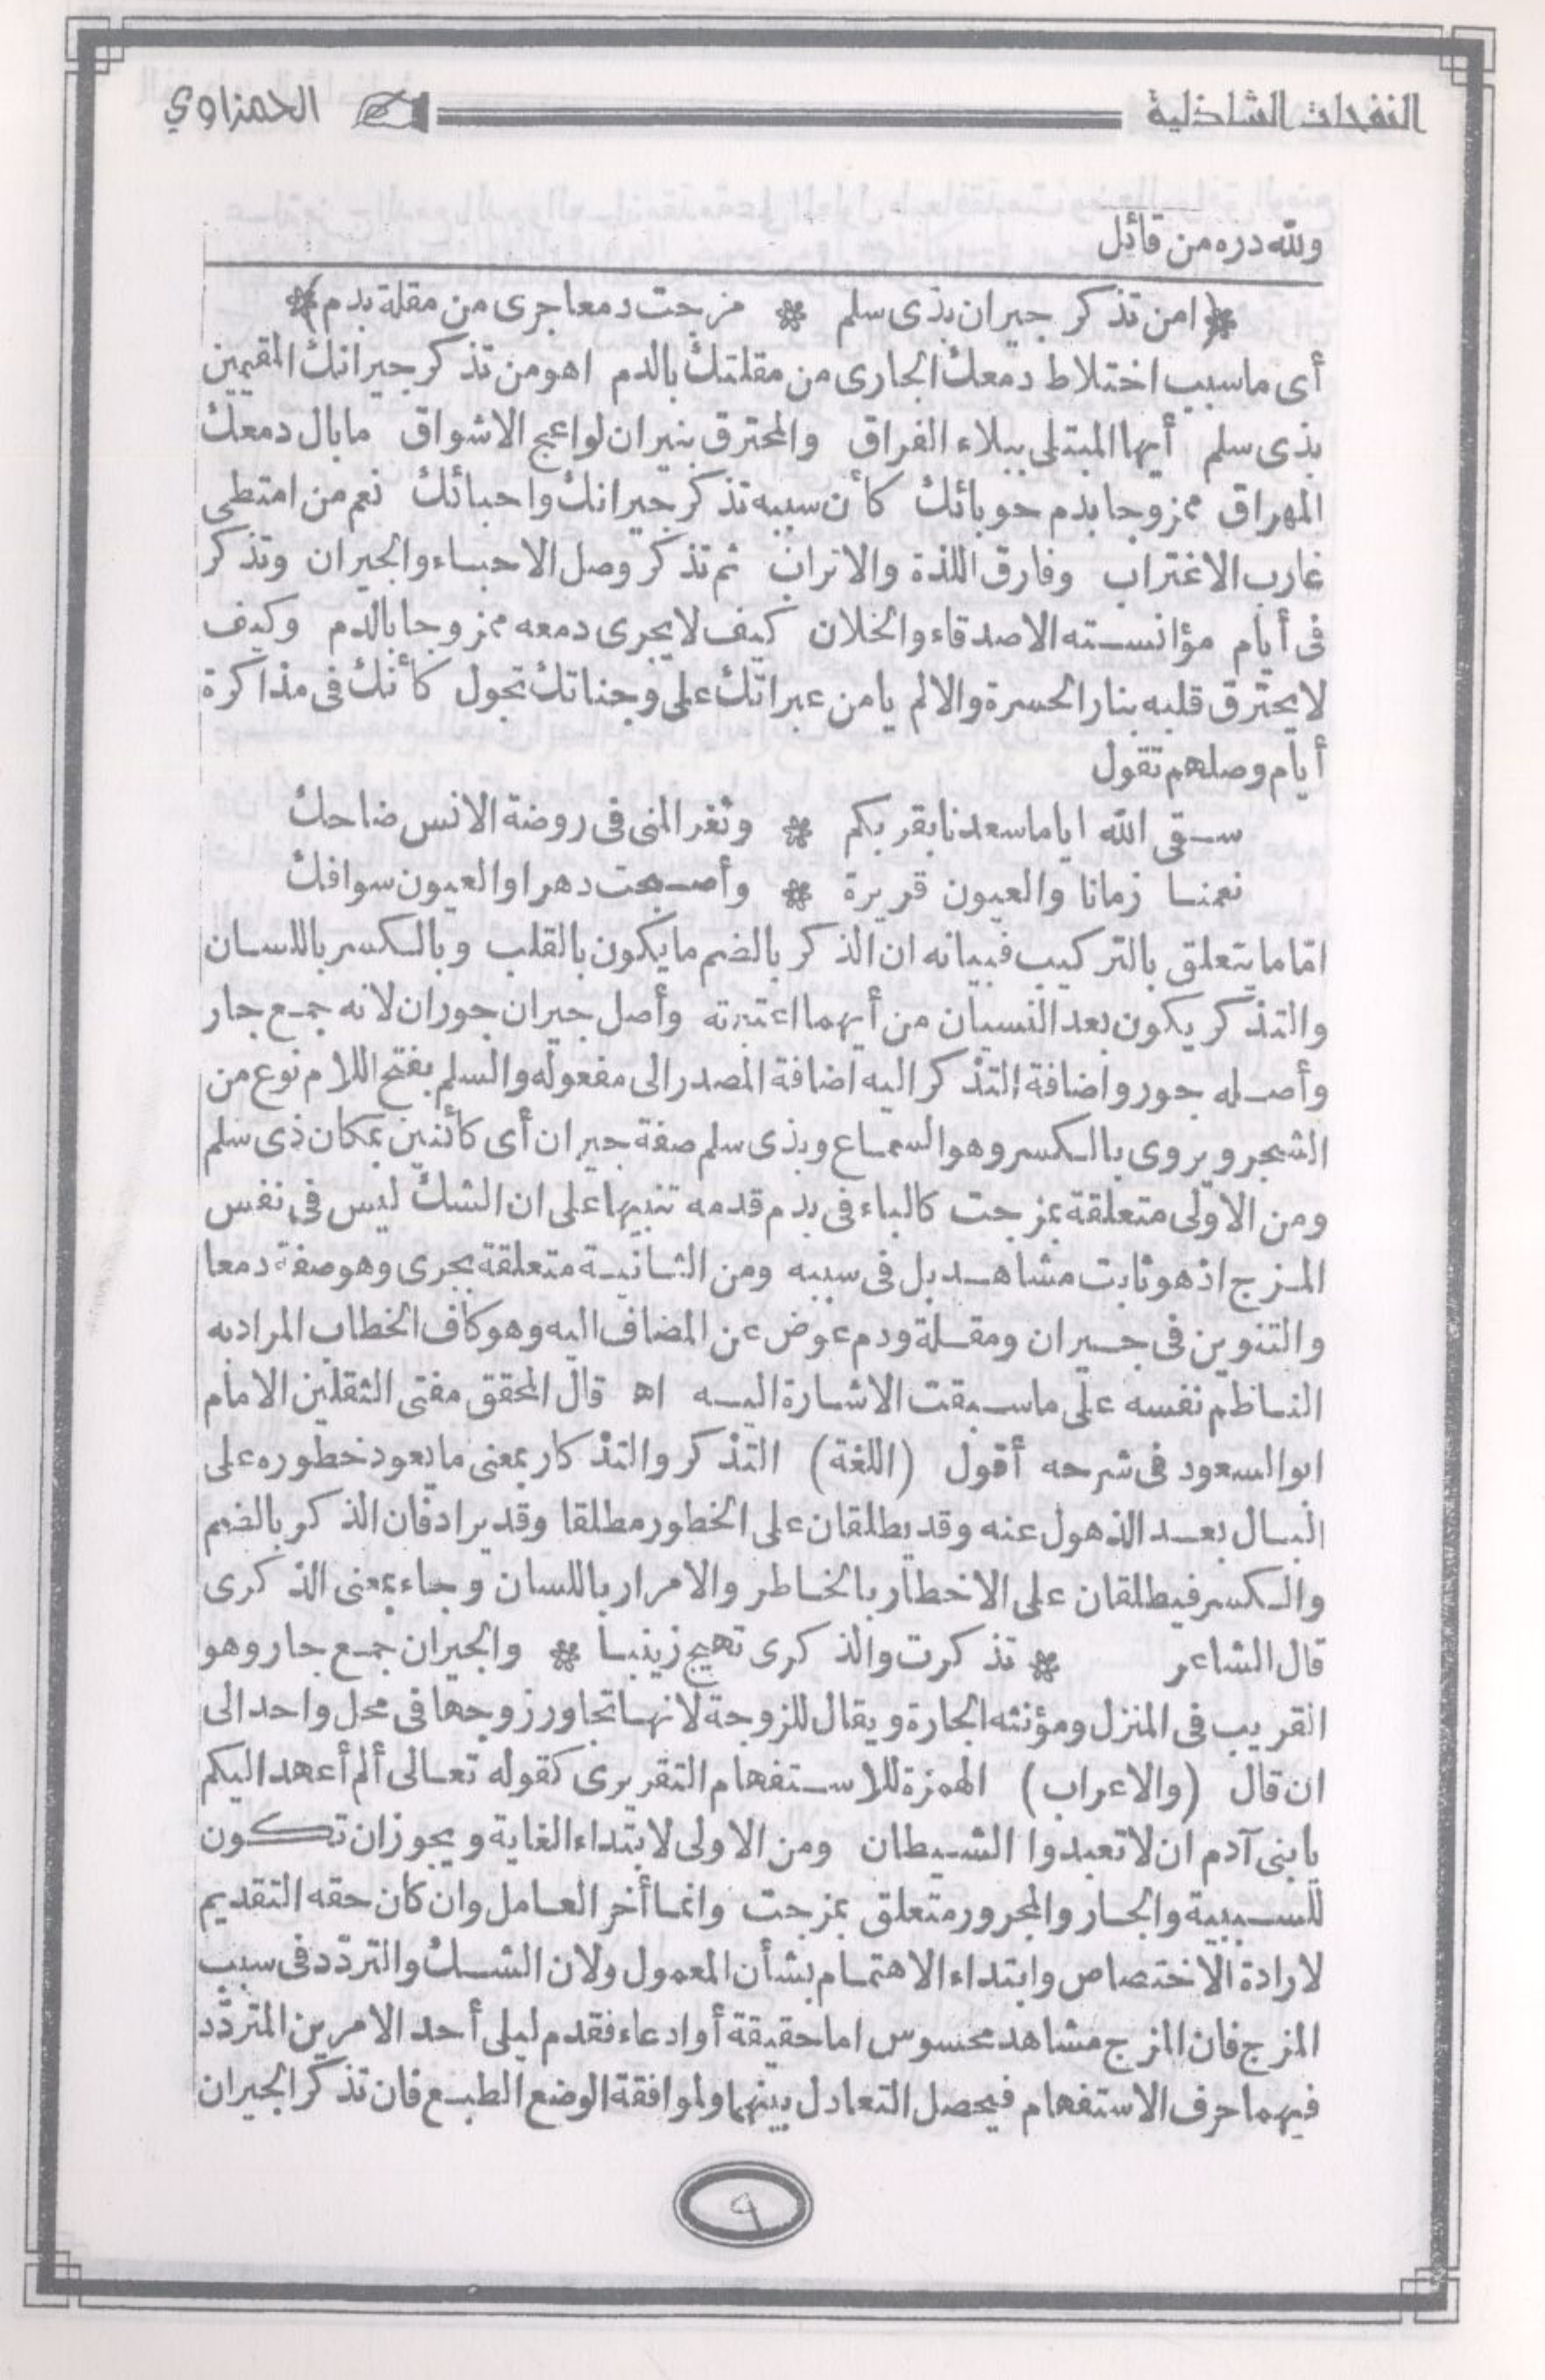 النفحات الشاذلية
الحمزاوي
ولله دره من قائل
﴿امن تذكر جيران بذى سلم * مزجت دمعا جرى من مقلة بدم﴾
أى ما سبب اختلاط دمعك الجارى من مقلتك بالدم اهو من تذكر جيرانك المقيمين
بذى سلم أيها المبتلى ببلاء الفراق والمحترق بنيران لواعج الاشواق ما بال دمعك
المهراق ممزوجا بدم حوبائك كأن سببه تذكر جيرانك واحبائك نعم من امتطى
غارب الاغتراب وفارق اللذة والاتراب ثم تذكر وصل الاحباء والجيران وتذكر
فى أيام مؤانسته الاصدقاء والخلان كيف لا يجرى دمعه ممزوجا بالدم وكيف
لا يحترق قلبه بنار الحسرة والالم يا من عبراتك على وجناتك تجول كأنك فى مذاكرة
أيام وصلهم تقول
سقى الله اياما سعدنا بقربكم * وثغر المنى فى روضة الانس ضاحك
نعمنا زمانا والعيون قريرة * وأصبحت دهرا والعيون سوافك
امّا ما يتعلق بالتركيب فبيانه ان الذكر بالضم ما يكون بالقلب وبالكسر باللسان
والتذكر يكون بعد النسيان من أيهما اعتبرته وأصل جيران جوران لانه جمع جار
وأصله جور واضافة التذكر اليه اضافة المصدر الى مفعوله والسلم بفتح اللام نوع من
الشجر ويروى بالكسر وهو السماع وبذى سلم صفة جيران أى كائنين بمكان ذى سلم
ومن الاولى متعلقة بمزجت كالباء فى بدم قدمه تنبيها على ان الشك ليس فى نفس
المزج اذ هو ثابت مشاهد بل فى سببه ومن الثانية متعلقة بجرى وهو صفة دمعا
والتنوين فى جيران ومقلة ودم عوض عن المضاف اليه وهو كاف الخطاب المراد به
الناظم نفسه على ما سبقت الاشارة اليه اه قال المحقق مفتى الثقلين الامام
ابو السعود فى شرحه أقول (اللغة) التذكر والتذكار بمعنى ما يعود خطوره على
البال بعد الذهول عنه وقد يطلقان على الخطور مطلقا وقد يرادفان الذكر بالضم
والكسر فيطلقان على الاخطار بالخاطر والامرار باللسان وجاء بمعنى الذكرى
قال الشاعر * تذكرت والذكرى تهيج زينبا * والجيران جمع جار وهو
القريب فى المنزل ومؤنثه الجارة ويقال للزوجة لانها تجاور زوجها فى محل واحد الى
ان قال (والاعراب) الهمزة للاستفهام التقريرى كقوله تعالى ألم أعهد اليكم
يا بنى آدم ان لا تعبدوا الشيطان ومن الاولى لابتداء الغاية ويجوز ان تكون
للسببية والجار والمجرور متعلق بمزجت وانما أخر العامل وان كان حقه التقديم
لارادة الاختصاص وابتداء الاهتمام بشأن المعمول ولان الشك والتردّد فى سبب
المزج فان المزج مشاهد محسوس اما حقيقة أو ادعاء فقدم ليلى أحد الامرين المتردّد
فيهما حرف الاستفهام فيحصل التعادل بينهما ولموافقة الوضع الطبع فان تذكر الجيران
٩